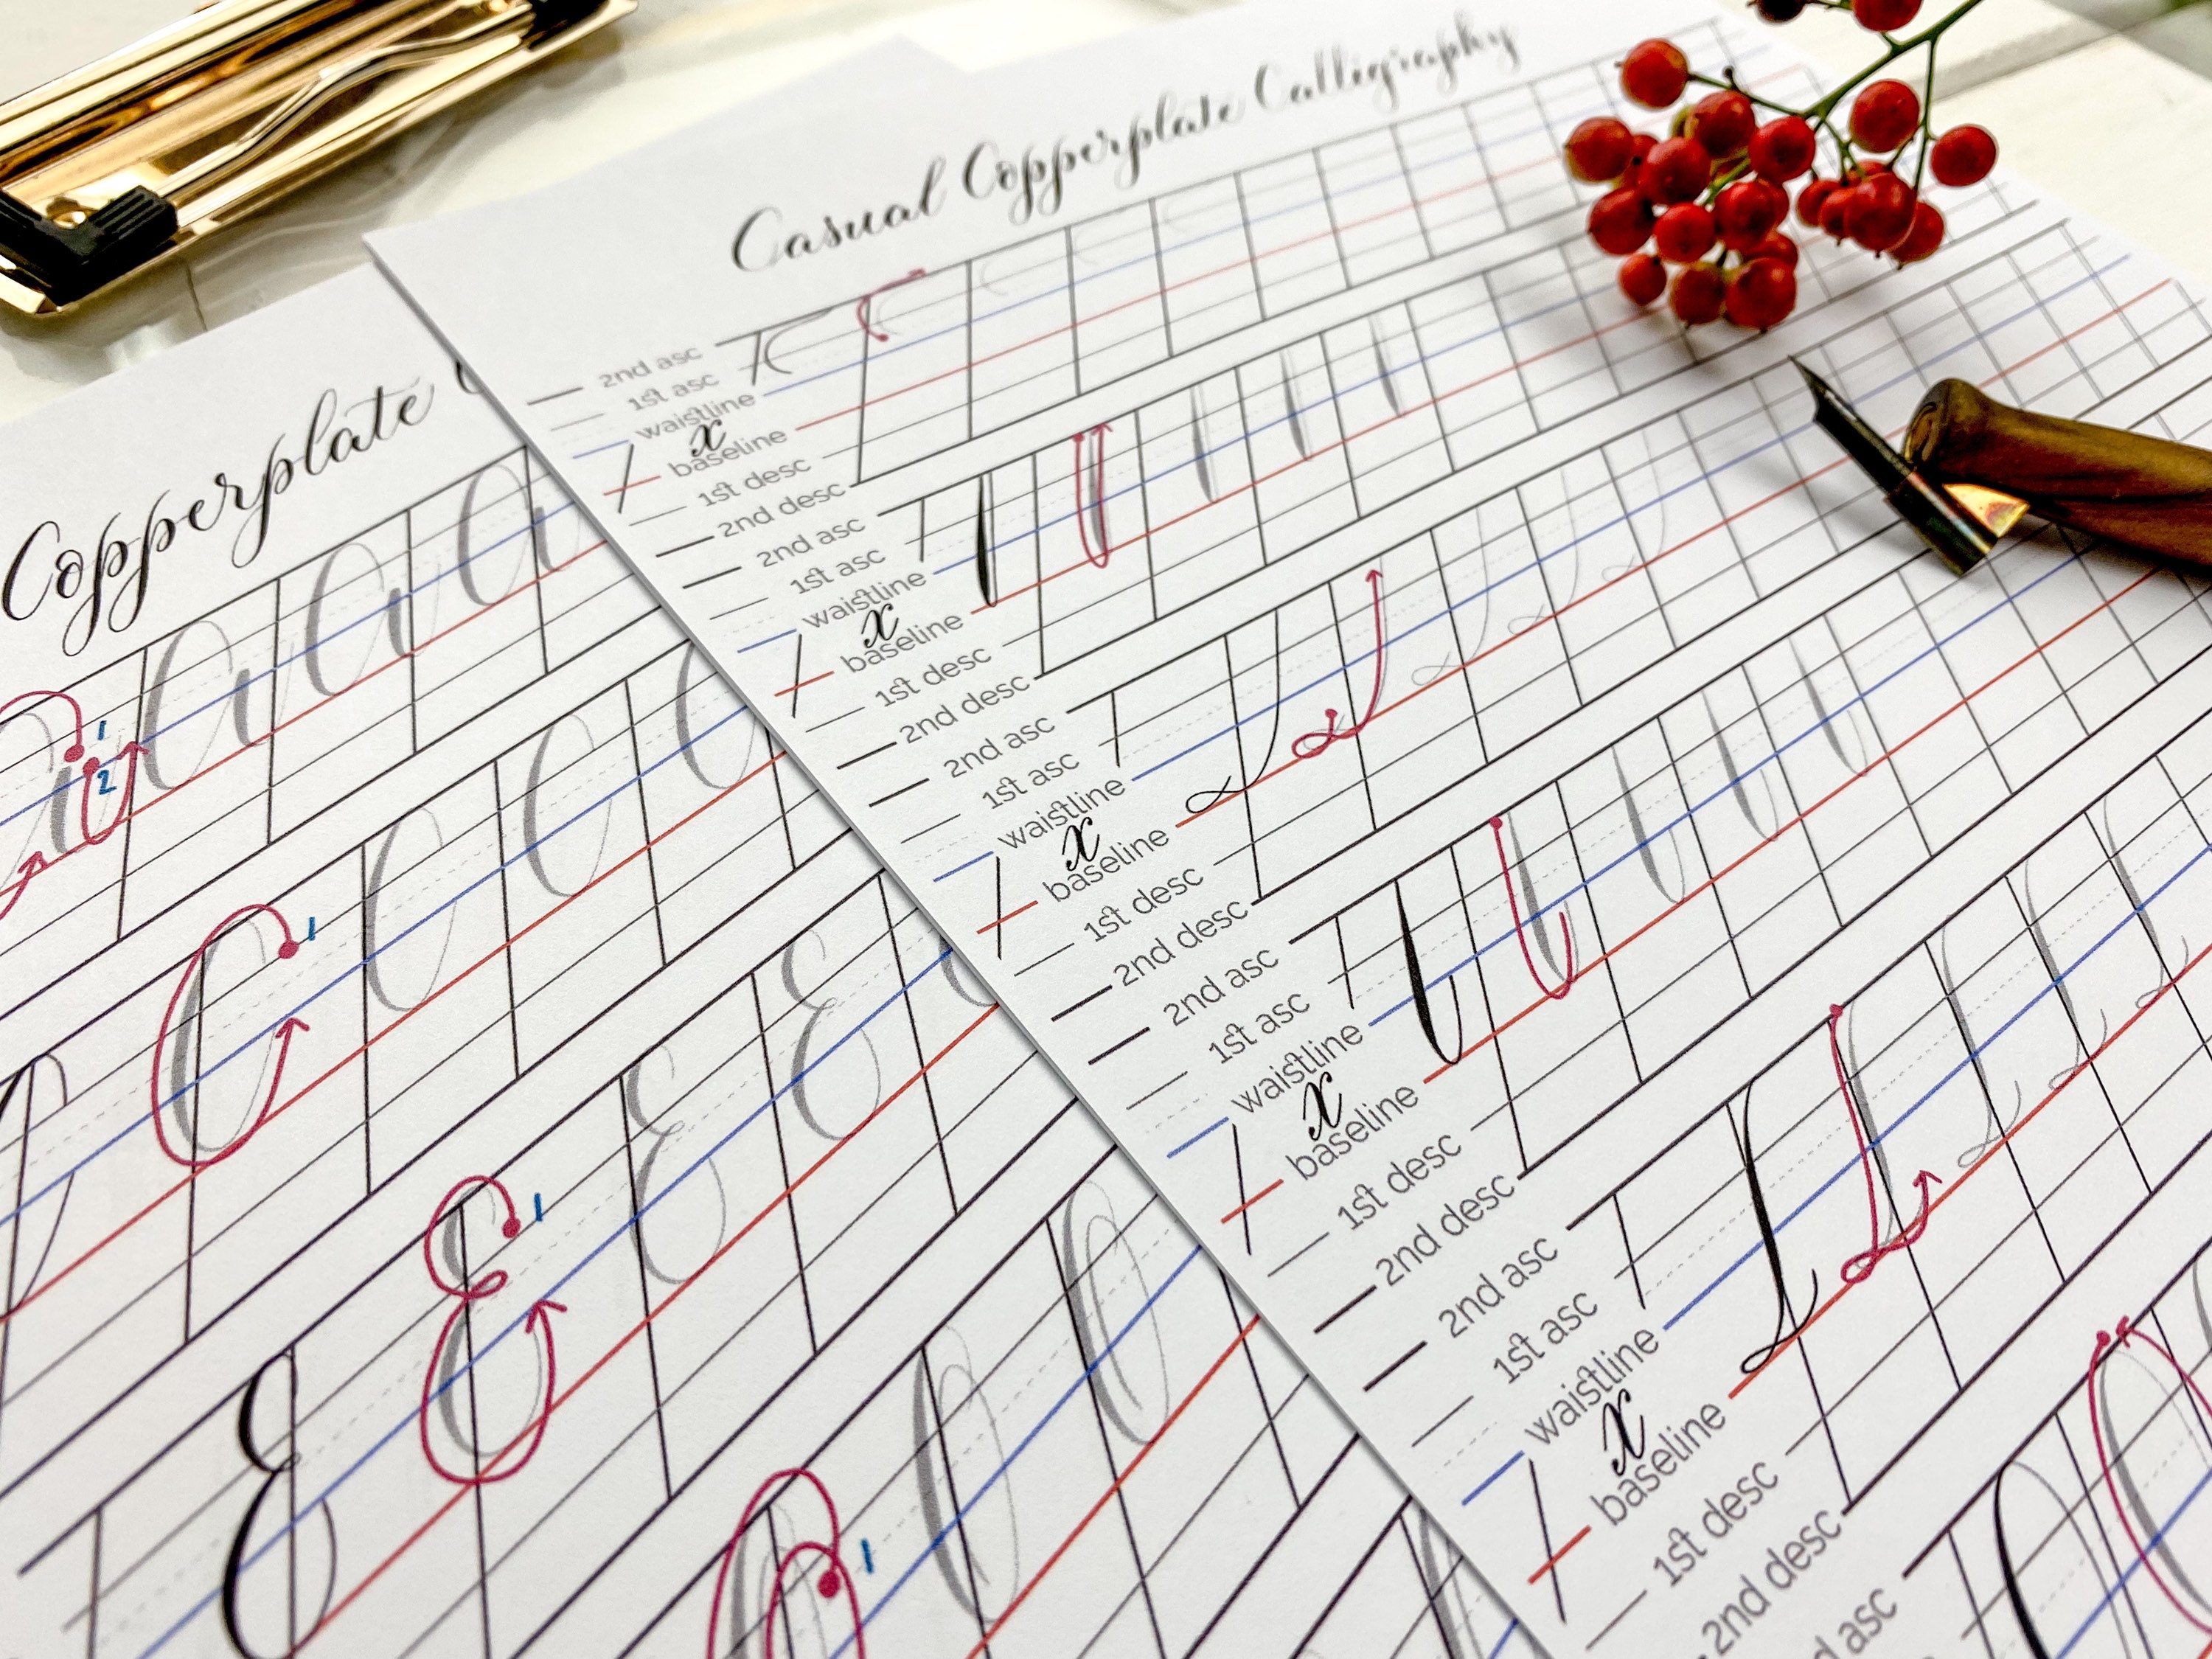 Casual Copperplate Calligraphy
2nd asc
1st asc
waistline
x
baseline
1st desc
2nd desc
2nd asc
1st asc
waistline
x
baseline
1st desc
2nd desc
2nd asc
1st asc
waistline
x
baseline
1st desc
2nd desc
2nd asc
1st asc
waistline
x
baseline
1st desc
2nd desc
2nd asc
1st asc
waistline
x
baseline
1st desc
2nd desc
asc
Copperplate
1
2
a a a a
1
C C C C
E
1
E E E
1
O O